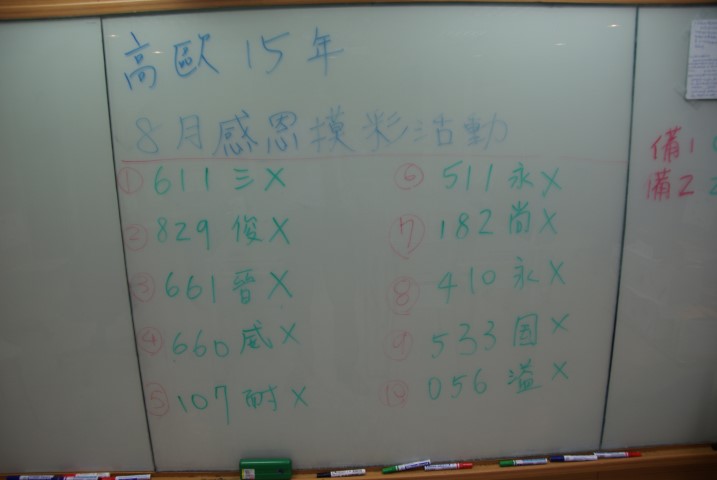 高歐15年
8月感恩摸彩活動
① 611 三X
② 829 俊X
③ 661 晉X
④ 660 威X
⑤ 107 耐X
⑥ 511 永X
⑦ 182 尚X
⑧ 410 永X
⑨ 533 國X
⑩ 056 溢X
備1
備2